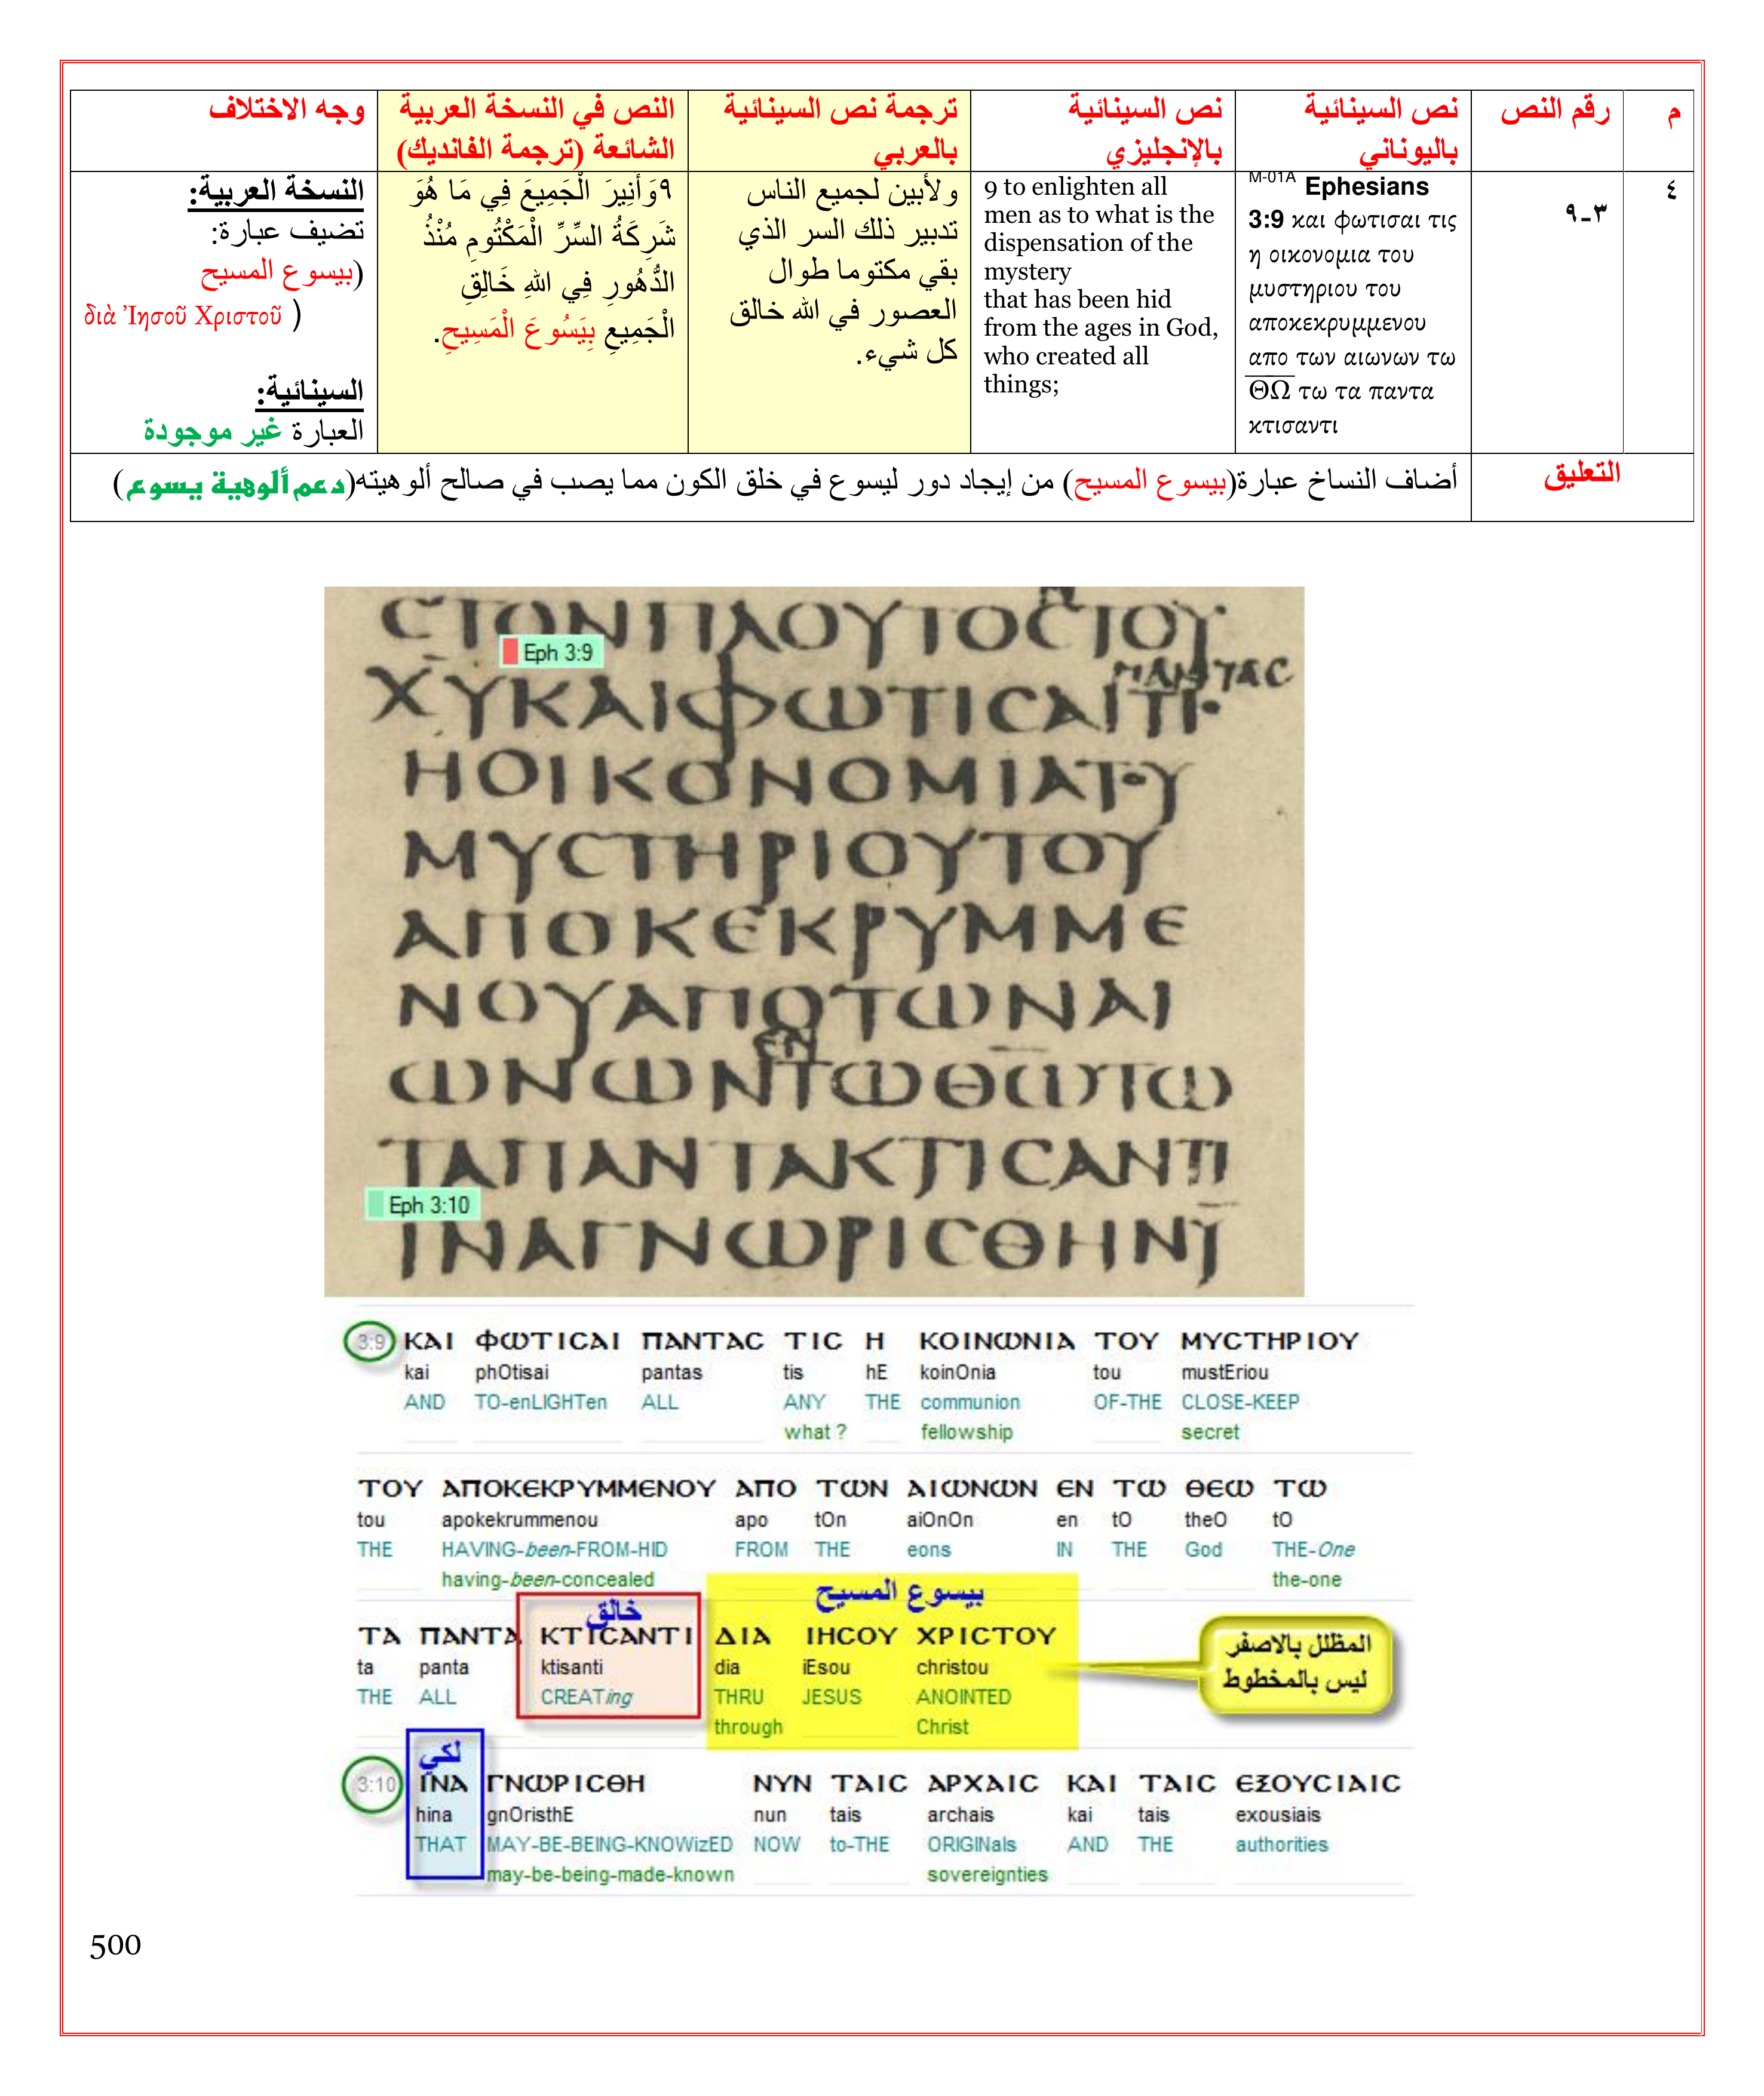 م
رقم النص
نص السينائية
باليوناني
نص السينائية
بالإنجليزي
ترجمة نص السينائية
بالعربي
النص في النسخة العربية
الشائعة (ترجمة الفانديك)
وجه الاختلاف
٤
٣-٩
M-01A Ephesians
3:9 και φωτισαι τις
η οικονομια του
μυστηριου του
αποκεκρυμμενου
απο των αιωνων τω
ΘΩ τω τα παντα
κτισαντι
9 to enlighten all
men as to what is the
dispensation of the
mystery
that has been hid
from the ages in God,
who created all
things;
ولأبين لجميع الناس
تدبير ذلك السر الذي
بقي مكتوما طوال
العصور في الله خالق
كل شيء.
٩وَأُنِيرَ الْجَمِيعَ فِي مَا هُوَ
شَرِكَةُ السِّرِّ الْمَكْتُومِ مُنْذُ
الدُّهُورِ فِي اللهِ خَالِقِ
الْجَمِيعِ بِيَسُوعَ الْمَسِيحِ.
النسخة العربية:
تضيف عبارة:
(بيسوع المسيح
διὰ Ἰησοῦ Χριστοῦ )
السينائية:
العبارة غير موجودة
التعليق
أضاف النساخ عبارة(بيسوع المسيح) من إيجاد دور ليسوع في خلق الكون مما يصب في صالح ألوهيته(دعم ألوهية يسوع)
CTONΠΛΟΥΤΟCΤΟΥ
Eph 3:9
ΠΑΝΤΑC
ΧΥΚΑΙΦΩΤΙCΑΙΤΙ
ΗΟΙΚΟΝΟΜΙΑΤΟΥ
ΜΥCΤΗΡΙΟΥΤΟΥ
ΑΠΟΚΕΚΡΥΜΜΕ
ΝΟΥΑΠΟΤΩΝΑΙ
ΕΝ
ΩΝΩΝΤΩΘΩΤΩ
ΤΑΠΑΝΤΑΚΤΙCΑΝΤΙ
Eph 3:10
ΙΝΑΓΝΩΡΙCΘΗΝΥ
3:9 ΚΑΙ ΦΩΤΙCΑΙ ΠΑΝΤΑC ΤΙC Η ΚΟΙΝΩΝΙΑ ΤΟΥ ΜΥCΤΗΡΙΟΥ
kai phOtisai pantas tis hE koinOnia tou mustEriou
AND TO-enLIGHTen ALL ANY THE communion OF-THE CLOSE-KEEP
what ? fellowship secret
ΤΟΥ ΑΠΟΚΕΚΡΥΜΜΕΝΟΥ ΑΠΟ ΤΩΝ ΑΙΩΝΩΝ ΕΝ ΤΩ ΘΕΩ ΤΩ
tou apokekrummenou apo tOn aiOnOn en tO theO tO
THE HAVING-been-FROM-HID FROM THE eons IN THE God THE-One
having-been-concealed the-one
خالق
بيسوع المسيح
ΤΑ ΠΑΝΤΑ ΚΤΙCΑΝΤΙ ΔΙΑ ΙΗCΟΥ ΧΡΙCΤΟΥ
ta panta ktisanti dia iEsou christou
THE ALL CREATing THRU JESUS ANOINTED
through Christ
المظلل بالاصفر
ليس بالمخطوط
لكي
3:10 ΙΝΑ ΓΝΩΡΙCΘΗ ΝΥΝ ΤΑΙC ΑΡΧΑΙC ΚΑΙ ΤΑΙC ΕΞΟΥCΙΑΙC
hina gnOristhE nun tais archais kai tais exousiais
THAT MAY-BE-BEING-KNOWizED NOW to-THE ORIGINals AND THE authorities
may-be-being-made-known sovereignties
500